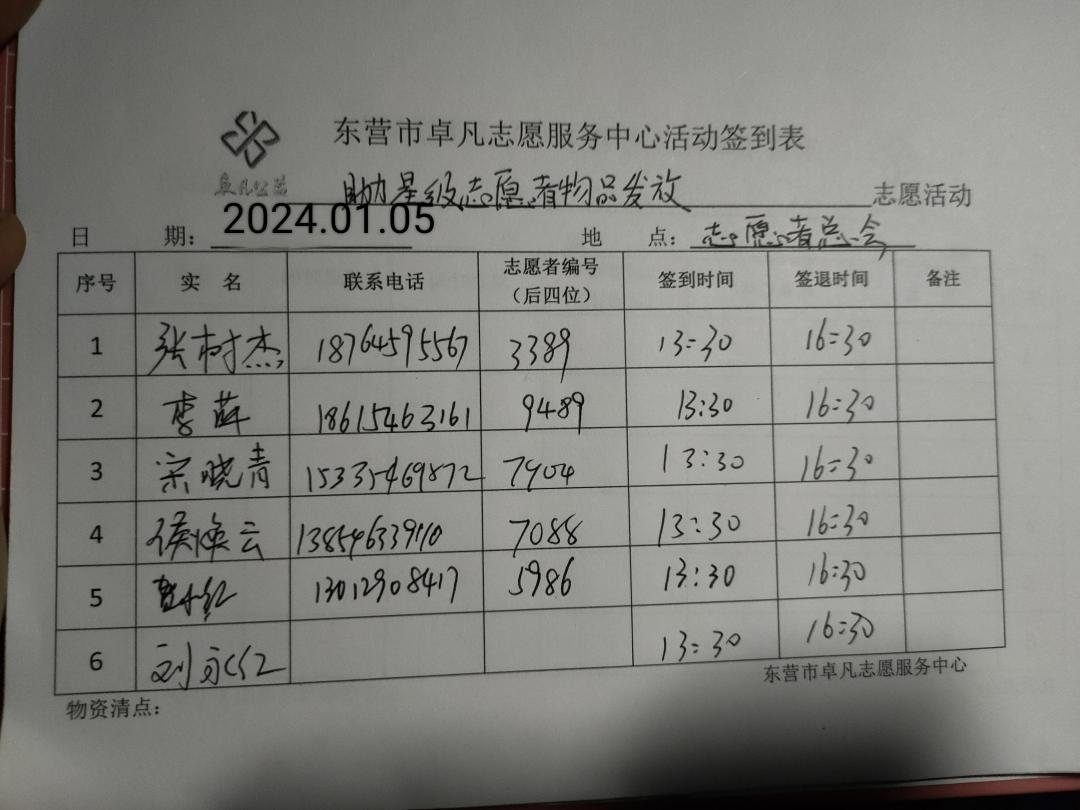 东营市卓凡志愿服务中心活动签到表
卓凡公益
助力星级志愿者物品发放 志愿活动
日 期: 2024.01.05 地 点: 志愿者总会
序号 实 名 联系电话 志愿者编号（后四位） 签到时间 签退时间 备注
1 张树杰 18764595567 3389 13:30 16:30
2 李萍 18615463161 9489 13:30 16:30
3 宋晓青 15335469872 7904 13:30 16:30
4 侯焕云 7088 13:30 16:30
5 13012908417 5986 13:30 16:30
6 刘永红 13:30 16:30
东营市卓凡志愿服务中心
物资清点: